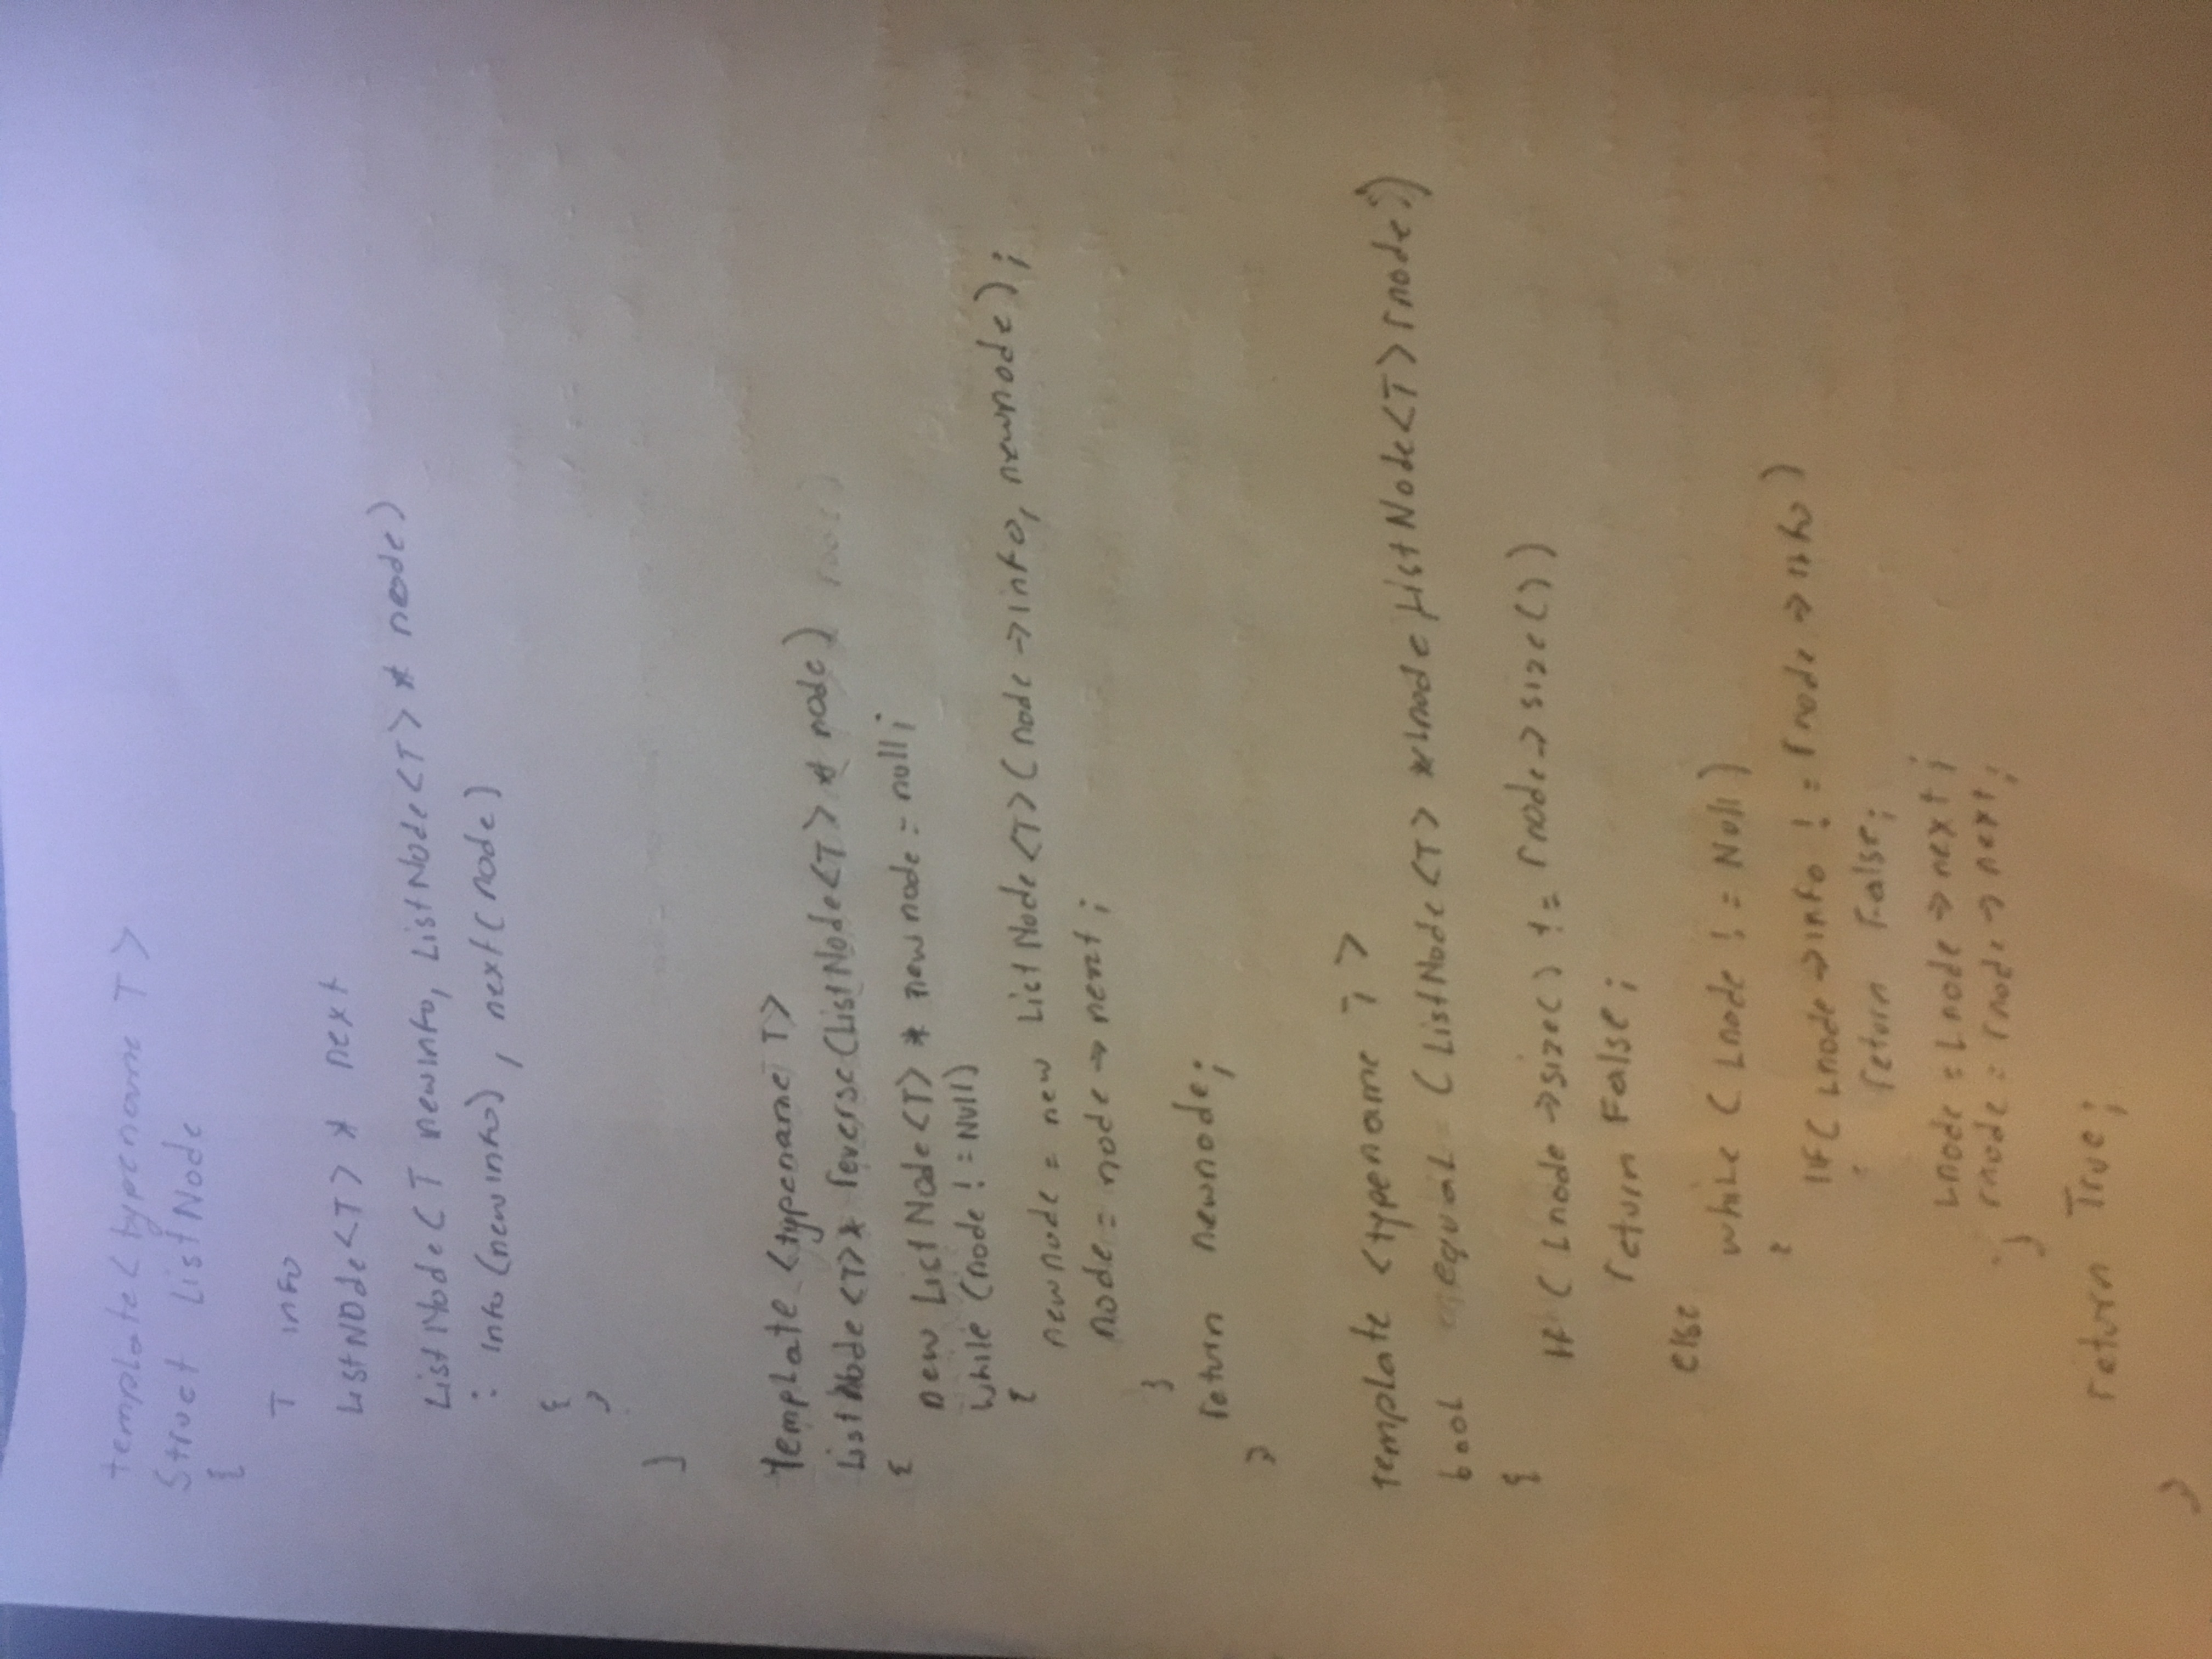 template<typename T>
Struct ListNode
{
T info
ListNode<T> * next
ListNode(T newinfo, ListNode<T> * node)
: info(newinfo), next(node)
{
}
}
Template <typename T>
ListNode<T>* reverse(ListNode<T> * node)
{
new ListNode<T> * newnode = null;
while (node != Null)
{
newnode = new ListNode<T>(node->info, newnode);
node = node->next;
}
return newnode;
}
template <typename T>
bool equal (ListNode<T> *Lnode, ListNode<T> rnode)
{
If (Lnode->size() != rnode->size())
return False;
else
while (Lnode != Null)
{
If(Lnode->info != rnode->info)
return False;
Lnode = Lnode->next;
rnode = rnode->next;
}
return True;
}